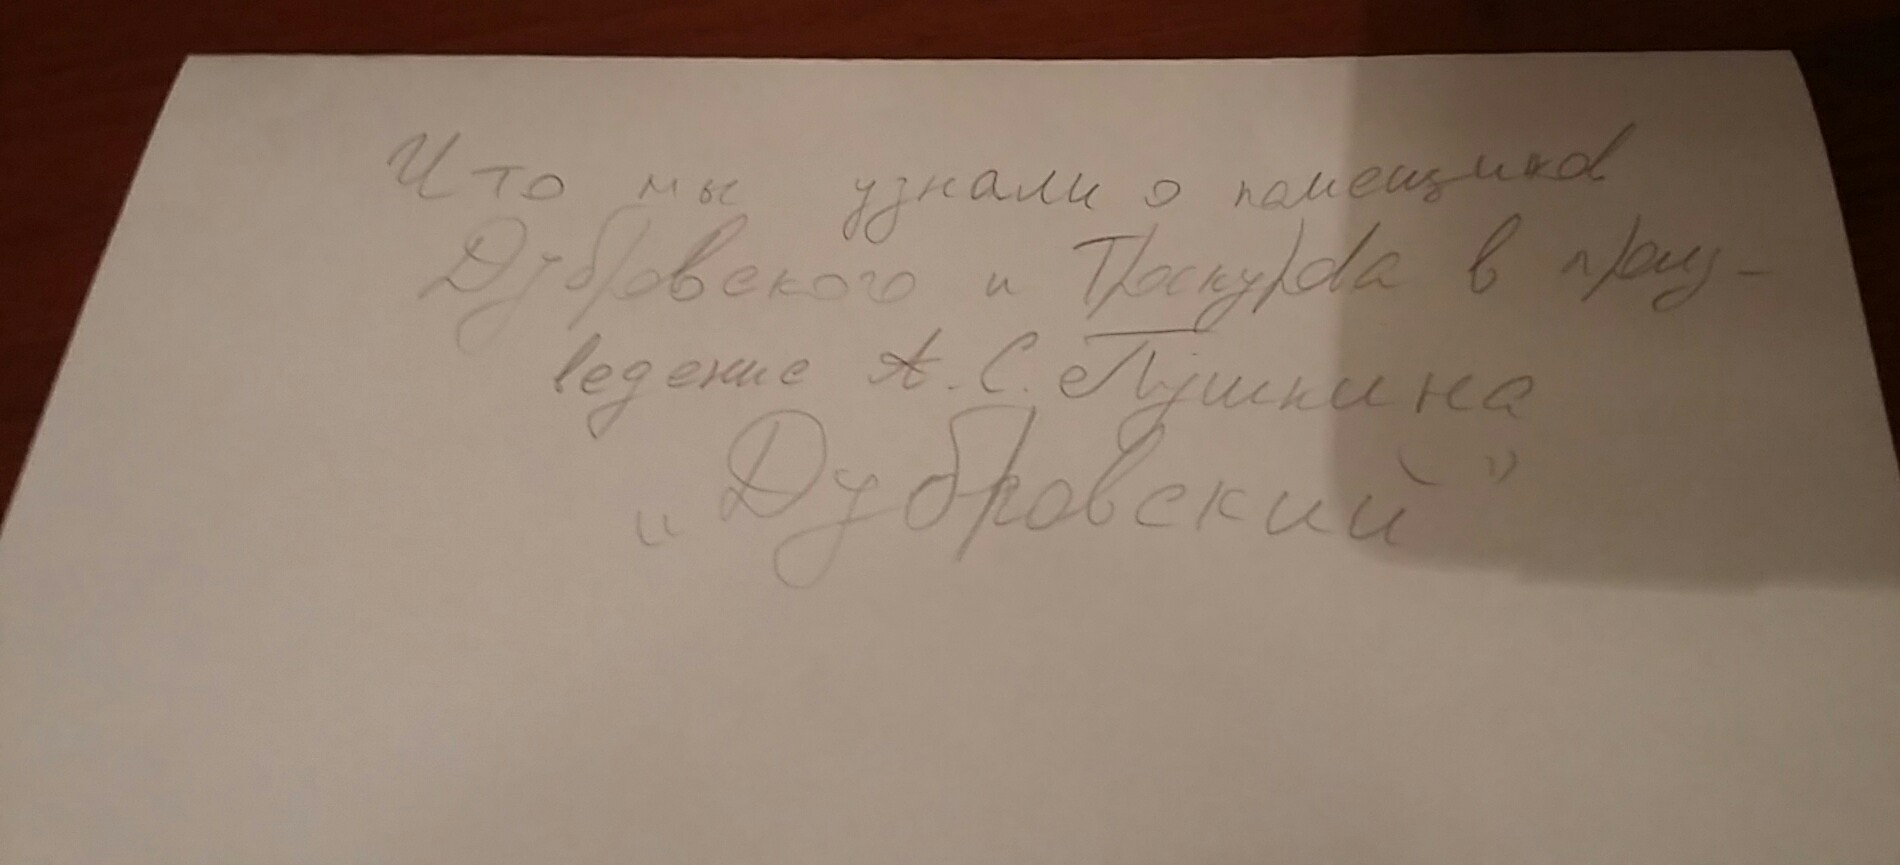 Что мы узнали о помещиков
Дубровского и Троскурова в произ-
ведение А.С. Пушкина
„Дубровский"